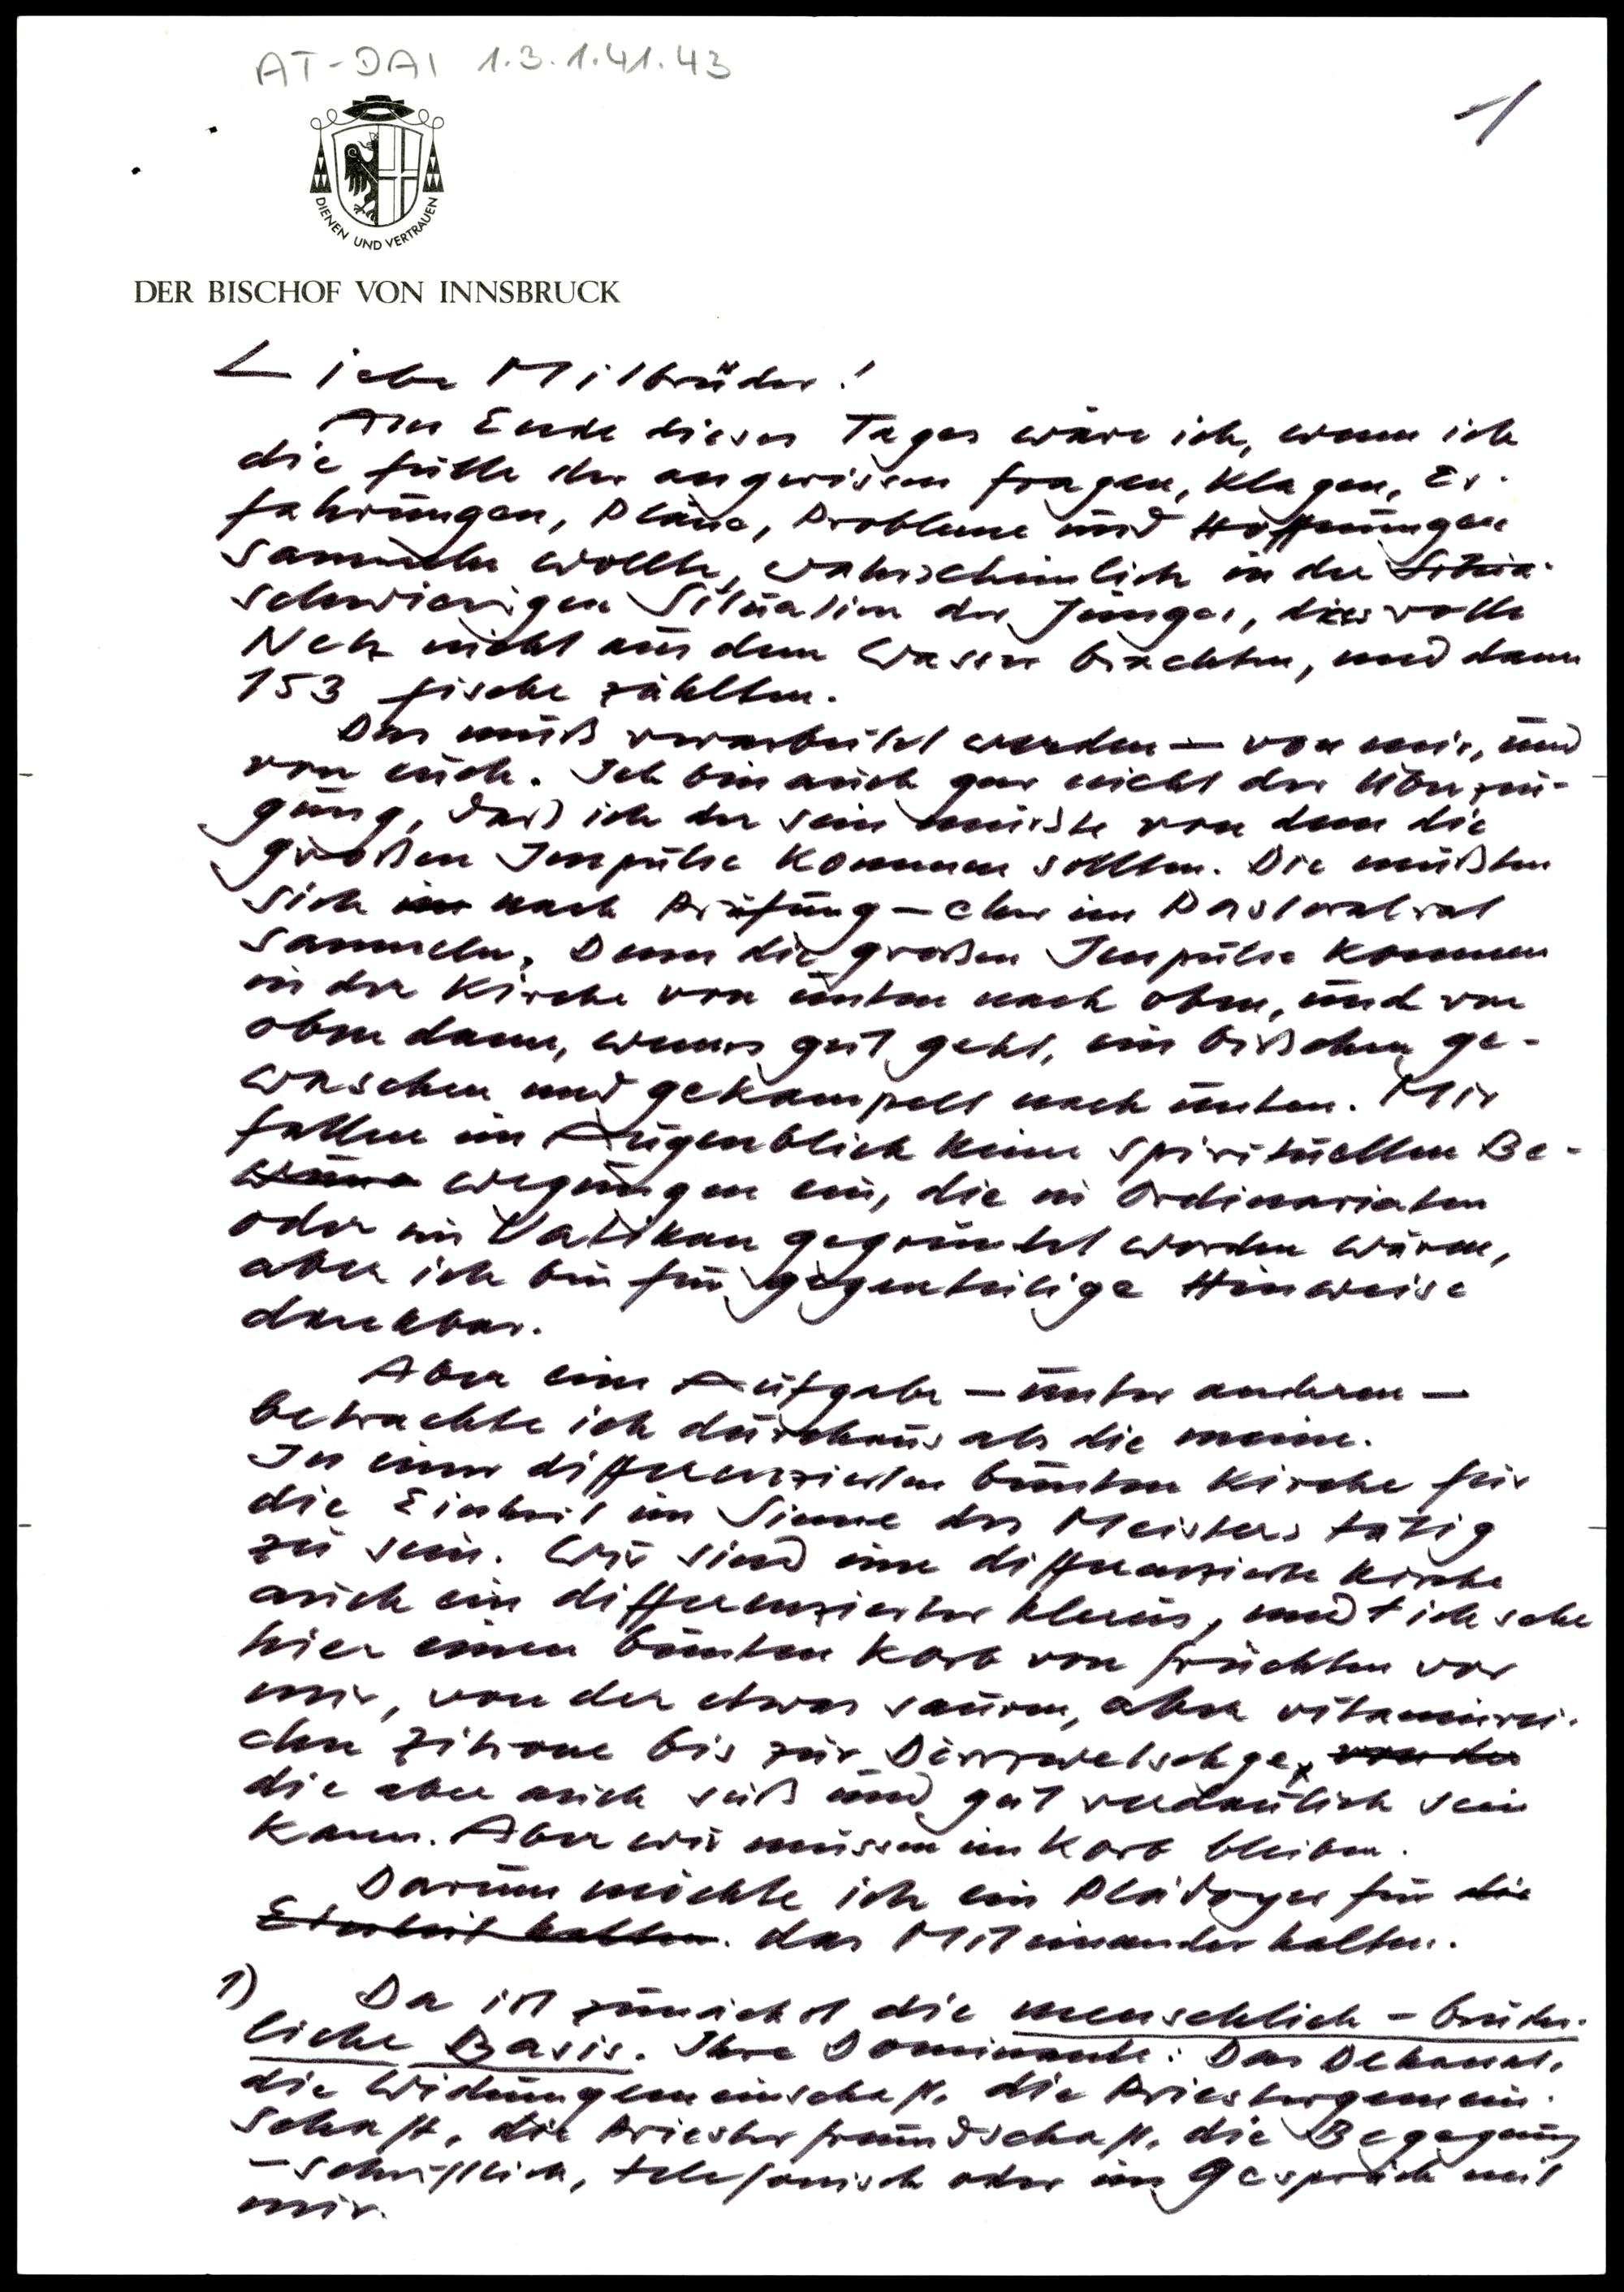 AT-DAI 1.3.1.41.43
1
DIENEN UND VERTRAUEN
DER BISCHOF VON INNSBRUCK
Liebe Mitbrüder!
Am Ende dieses Tages wäre ich, wenn ich
die Fülle der angerissenen Fragen, Klagen, Er-
fahrungen, Pläne, Probleme und Hoffnungen
sammeln wollte, wahrscheinlich in der
schwierigen Situation der Jünger, die volle
Netz nicht aus dem Wasser brachten, und dann
153 Fische zählten.
Das muß verarbeitet werden — von mir, und
von euch. Ich bin auch gar nicht der Überzeu-
gung, daß ich der sein müßte von dem die
großen Impulse kommen sollten. Die müßten
sich im nach Prüfung – eher im Pastoralrat
sammeln. Denn die großen Impulse kommen
in der Kirche von unten nach oben, und von
oben dann, wenns gut geht, ein bißchen ge-
waschen und gekampelt nach unten. Mir
fallen im Augenblick keine spirituellen Be-
wegungen ein, die in Ordinariaten
oder im Vatikan gegründet worden wären,
aber ich bin für gegenteilige Hinweise
dankbar.
Aber eine Aufgabe — unter anderen —
betrachte ich durchaus als die meine.
In einer differenzierten bunten Kirche für
die Einheit im Sinne des Meisters tätig
zu sein. Wir sind eine differenzierte Kirche
auch ein differenzierter Klerus, und ich sehe
hier einen bunten Korb von Früchten vor
mir, von der etwas sauren, aber vitaminrei-
chen Zitrone bis zur Dörrzwetschge, von der
die aber auch süß und gut verdaulich sein
kann. Aber wir müssen im Korb bleiben.
Darum möchte ich ein Plädoyer für die
Einheit halten. das Miteinander halten.
1) Da ist zunächst die menschlich – brüder-
liche Basis. Ihre Dominante: Das Dekanat,
die Widumgemeinschaft, die Priestergemein-
schaft, die Priesterfreundschaft, die Begegnung
– schriftlich, telefonisch oder im Gespräch mit
mir.